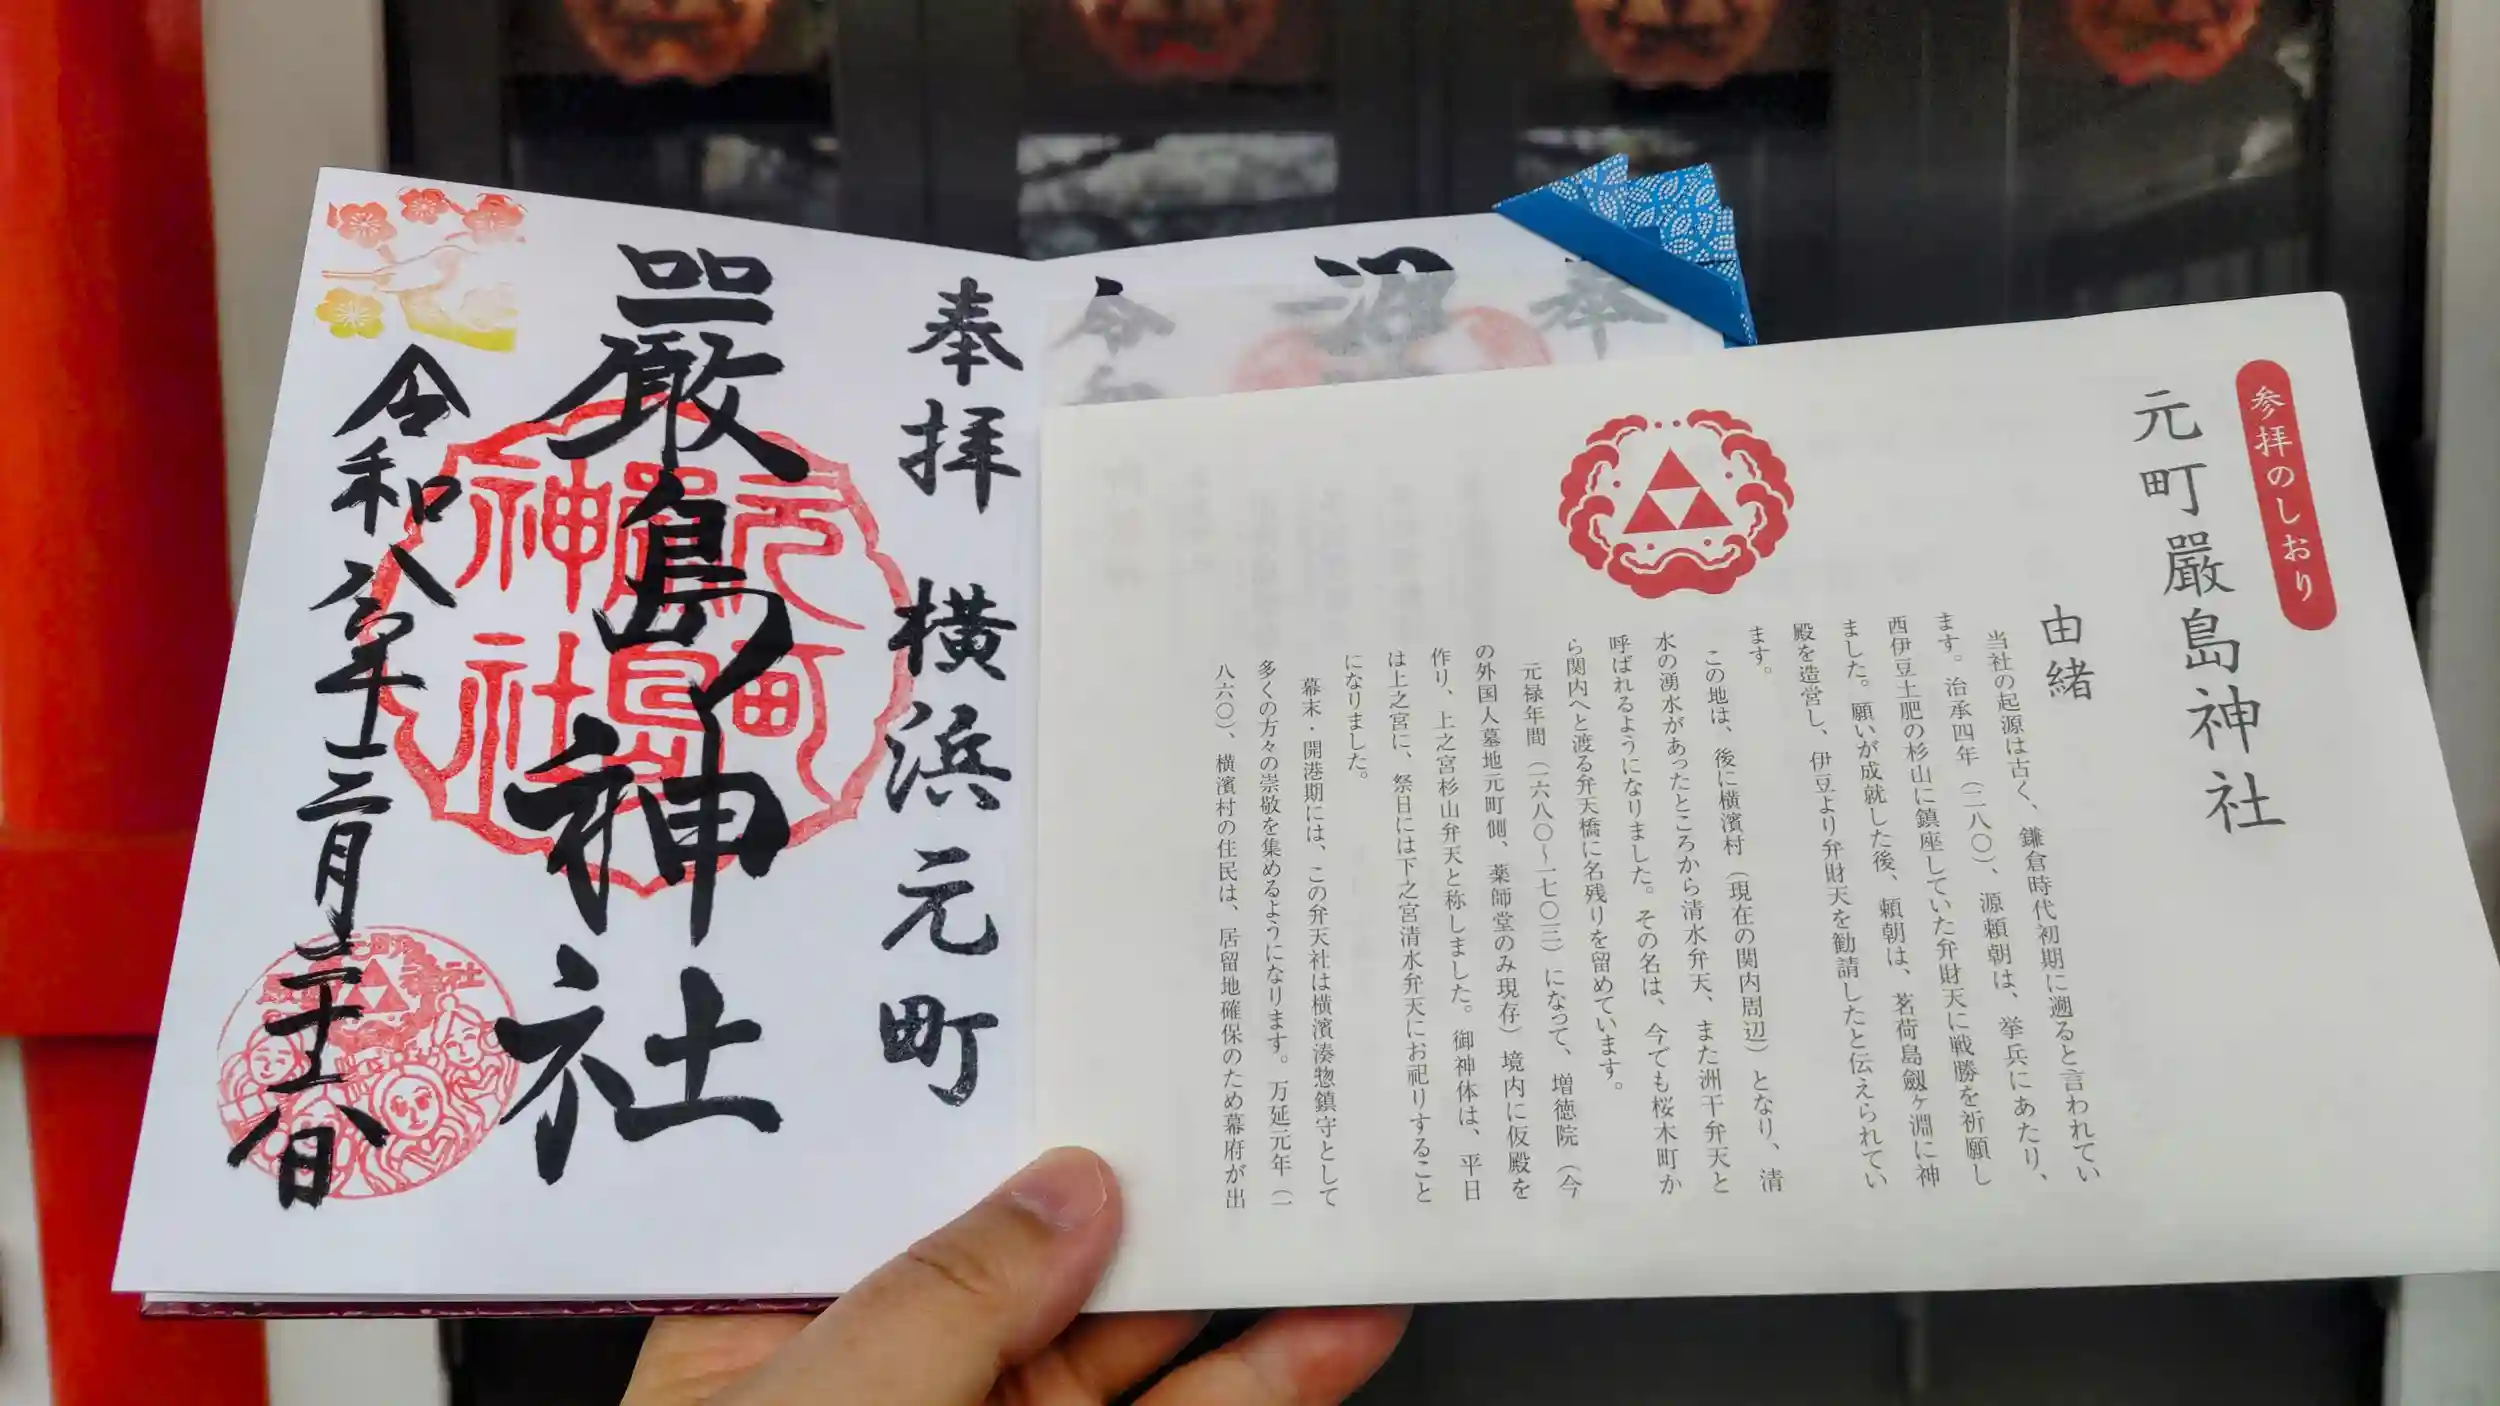 奉拝 横浜元町
嚴島神社
令和八年三月
元町
嚴島
神社
奉
沼
令和
参拝のしおり
元町嚴島神社
由緒
当社の起源は古く、鎌倉時代初期に遡ると言われてい
ます。治承四年（一一八〇）、源頼朝は、挙兵にあたり、
西伊豆土肥の杉山に鎮座していた弁財天に戦勝を祈願し
ました。願いが成就した後、頼朝は、茗荷島劔ヶ淵に神
殿を造営し、伊豆より弁財天を勧請したと伝えられてい
ます。
この地は、後に横濱村（現在の関内周辺）となり、清
水の湧水があったところから清水弁天、また洲干弁天と
呼ばれるようになりました。その名は、今でも桜木町か
ら関内へと渡る弁天橋に名残りを留めています。
元禄年間（一六八〇～一七〇三）になって、増徳院（今
の外国人墓地元町側、薬師堂のみ現存）境内に仮殿を
作り、上之宮杉山弁天と称しました。御神体は、平日
は上之宮に、祭日には下之宮清水弁天にお祀りすること
になりました。
幕末・開港期には、この弁天社は横濱湊惣鎮守として
多くの方々の崇敬を集めるようになります。万延元年（一
八六〇）、横濱村の住民は、居留地確保のため幕府が出